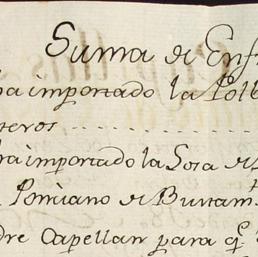 Suma de Enf
ha importado la Polb
teros
ha importado la Losa de
Pomiano de Bustam
dre Capellan para q.